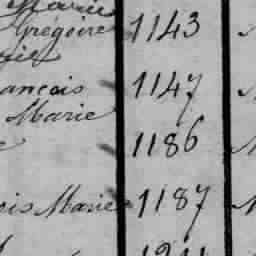 Marie
Grégoire 1143
ancois 1147
Marie
1186
ois Marie 1187